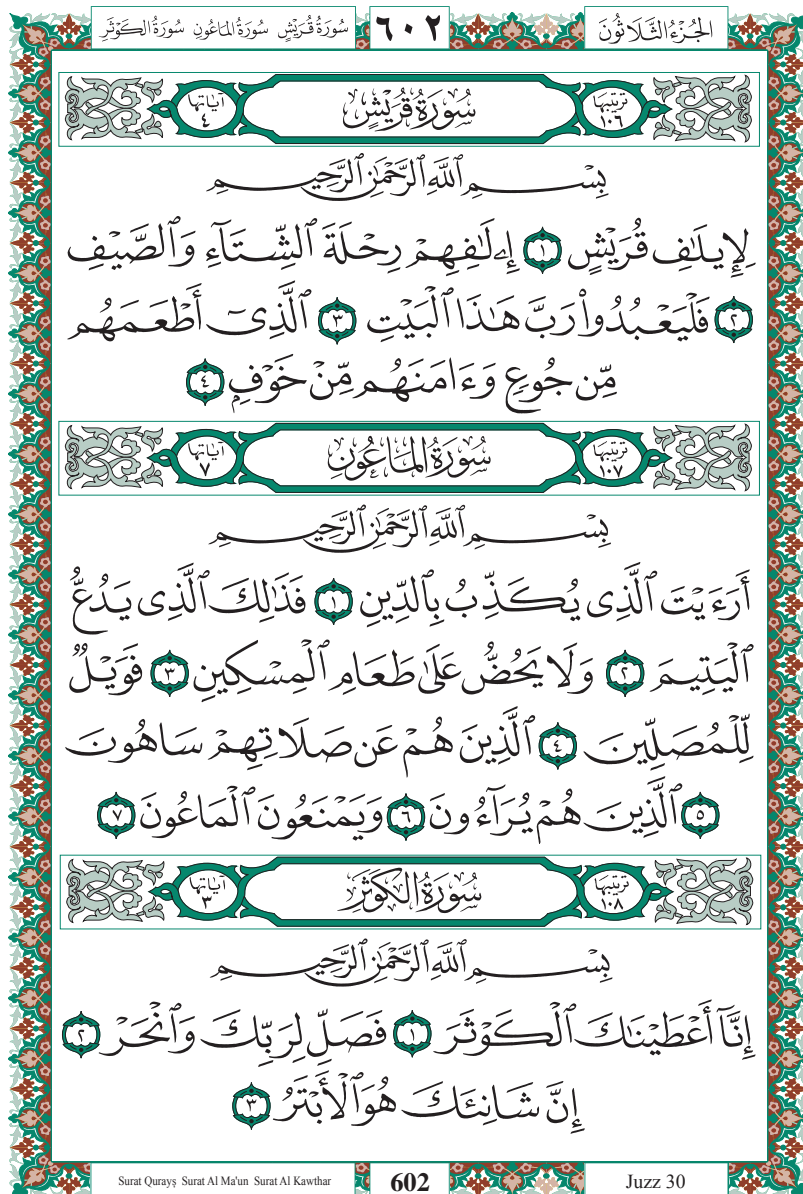 الجُزْءُ الثَّلَاثُونَ ٦٠٢ سُورَةُ قُرَيْشٍ سُورَةُ المَاعُونِ سُورَةُ الكَوْثَرِ
ترتيبها ١٠٦ سُورَةُ قُرَيْشٍ آياتها ٤
بِسْمِ ٱللَّهِ ٱلرَّحْمَٰنِ ٱلرَّحِيمِ
لِإِيلَٰفِ قُرَيْشٍ ١ إِۦلَٰفِهِمْ رِحْلَةَ ٱلشِّتَآءِ وَٱلصَّيْفِ
٢ فَلْيَعْبُدُوا۟ رَبَّ هَٰذَا ٱلْبَيْتِ ٣ ٱلَّذِىٓ أَطْعَمَهُم
مِّن جُوعٍ وَءَامَنَهُم مِّنْ خَوْفٍۭ ٤
ترتيبها ١٠٧ سُورَةُ المَاعُونِ آياتها ٧
بِسْمِ ٱللَّهِ ٱلرَّحْمَٰنِ ٱلرَّحِيمِ
أَرَءَيْتَ ٱلَّذِى يُكَذِّبُ بِٱلدِّينِ ١ فَذَٰلِكَ ٱلَّذِى يَدُعُّ
ٱلْيَتِيمَ ٢ وَلَا يَحُضُّ عَلَىٰ طَعَامِ ٱلْمِسْكِينِ ٣ فَوَيْلٌ
لِّلْمُصَلِّينَ ٤ ٱلَّذِينَ هُمْ عَن صَلَاتِهِمْ سَاهُونَ
٥ ٱلَّذِينَ هُمْ يُرَآءُونَ ٦ وَيَمْنَعُونَ ٱلْمَاعُونَ ٧
ترتيبها ١٠٨ سُورَةُ الكَوْثَرِ آياتها ٣
بِسْمِ ٱللَّهِ ٱلرَّحْمَٰنِ ٱلرَّحِيمِ
إِنَّآ أَعْطَيْنَٰكَ ٱلْكَوْثَرَ ١ فَصَلِّ لِرَبِّكَ وَٱنْحَرْ ٢
إِنَّ شَانِئَكَ هُوَ ٱلْأَبْتَرُ ٣
Surat Qurayş Surat Al Ma'un Surat Al Kawthar 602 Juzz 30